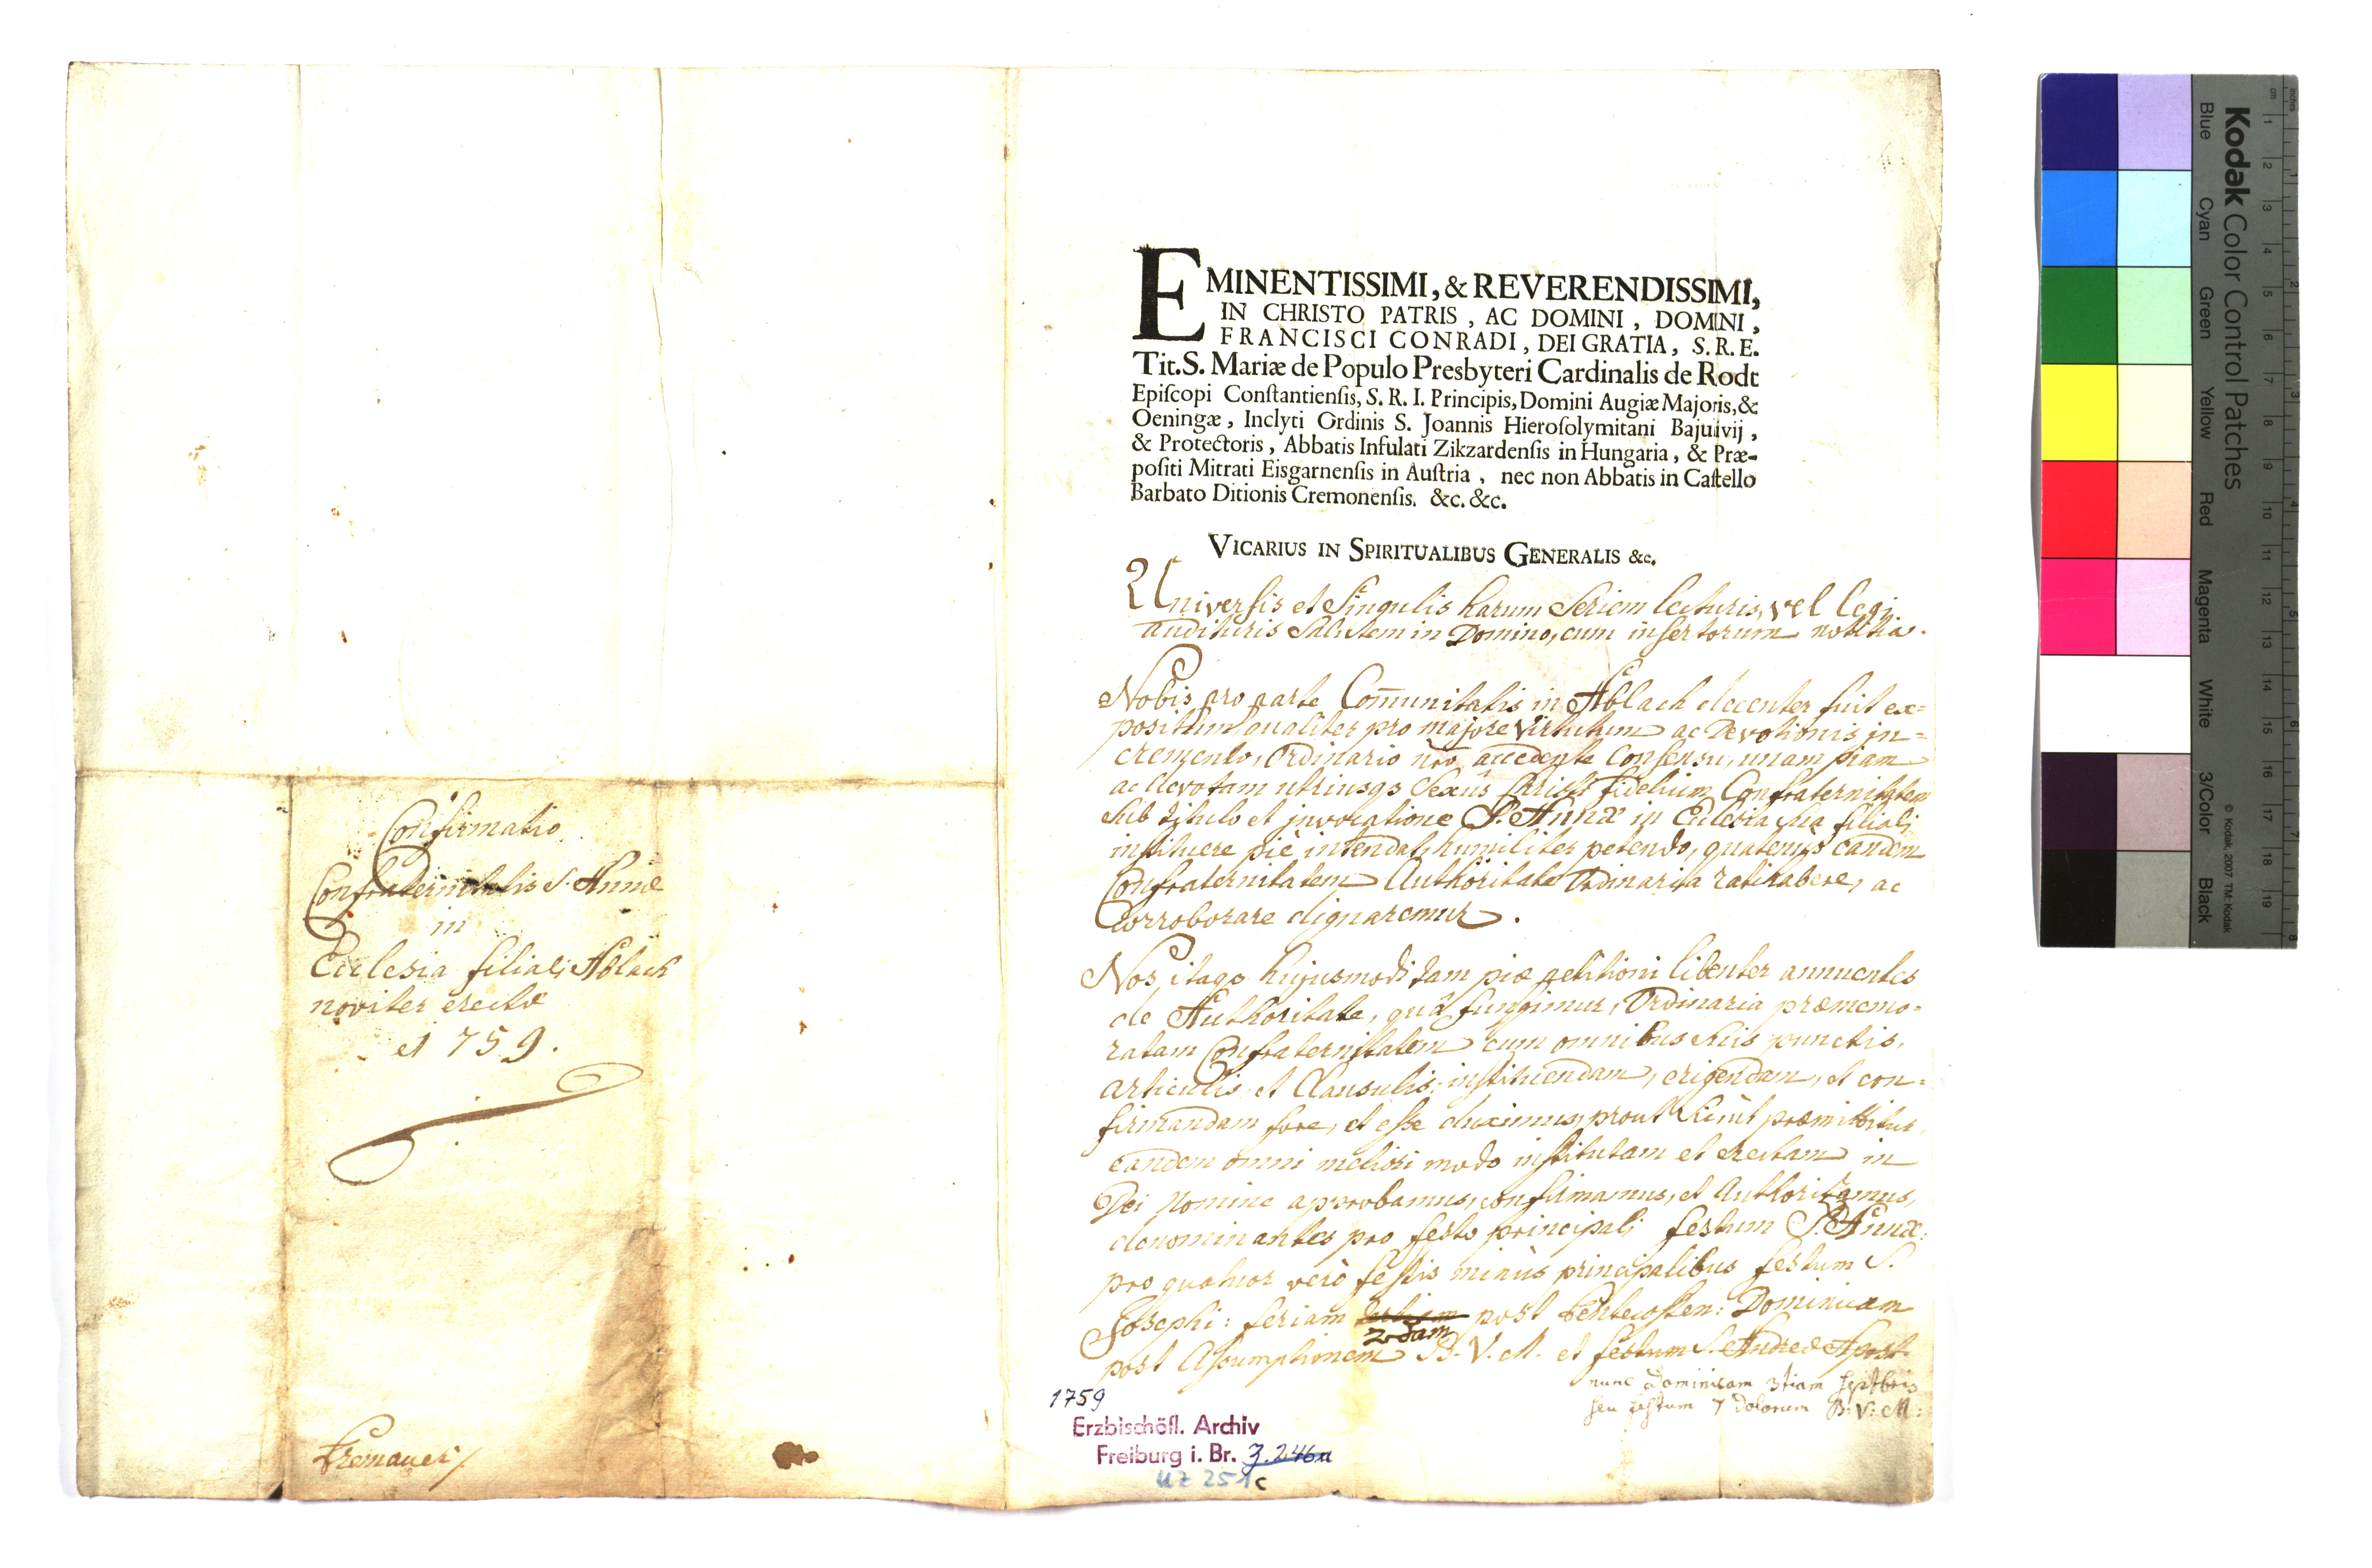 Confirmatio
Confraternitatis S. Annæ
in
Ecclesia filiali Ablach
noviter erectæ
1759.
EMINENTISSIMI, & REVERENDISSIMI,
IN CHRISTO PATRIS, AC DOMINI, DOMINI,
FRANCISCI CONRADI, DEI GRATIA, S. R. E.
Tit. S. Mariæ de Populo Presbyteri Cardinalis de Rodt
Epiſcopi Conſtantienſis, S. R. I. Principis, Domini Augiæ Majoris, &
Oeningæ, Inclyti Ordinis S. Joannis Hieroſolymitani Bajulivij,
& Protectoris, Abbatis Infulati Zikzardenſis in Hungaria, & Præ-
poſiti Mitrati Eisgarnenſis in Auſtria, nec non Abbatis in Caſtello
Barbato Ditionis Cremonenſis. &c. &c.
VICARIUS IN SPIRITUALIBUS GENERALIS &c.
Universis et Singulis harum Seriem lecturis, vel legi
audituris Salutem in Domino, cum insertorum notitia.
Nobis pro parte Com̄unitatis in Ablach decenter fuit ex=
positum, qualiter pro majore Virtutum ac Devotionis in=
cremento, Ordinario nr̄o accedente Consensu, unam piam
ac devotam utriusqs Sexûs Christi fidelium Confraternitatem
sub titulo et invocatione S. Annæ in Ecclesia sua filiali
instituere piè intendat, humiliter petendo, quatenùs eandem
Confraternitatem Authoritate Ordinaria ratihabere, ac
corroborare dignaremur.
Nos itaqs hujusmodi tam piæ petitioni libenter annuentes
de Authoritate, quâ fungimur, Ordinaria præmemo=
ratam Confraternitatem cum omnibus suis punctis,
articulis et Clausulis, instituendam, erigendam, et con=
firmandam fore, et esse duximus, prout sicùt præmittitur,
eandem omni meliori modo institutam et erectam in
Dei Nomine approbamus, confirmamus, et Authorizamus,
denominantes pro festo principali festum S. Annæ:
pro quatuor verò festis minùs principalibus festum S.
Josephi: feriam tertiam post Pentecosten: Dominicam
2dam
post Assumptionem B. V. M. et festum S. Andreæ Apost.
nunc Dominicam 3tiam Septbris
seu festum 7 Dolorum B: V: M:
1759
Erzbischöfl. Archiv
Freiburg i. Br. 3.246a
UZ 251c
Kodak Color Control Patches
Blue Cyan Green Yellow Red Magenta White 3/Color Black
© Kodak, 2007 TM: Kodak
inches 1 2 3 4 5 6 7 8
cm 1 2 3 4 5 6 7 8 9 10 11 12 13 14 15 16 17 18 19